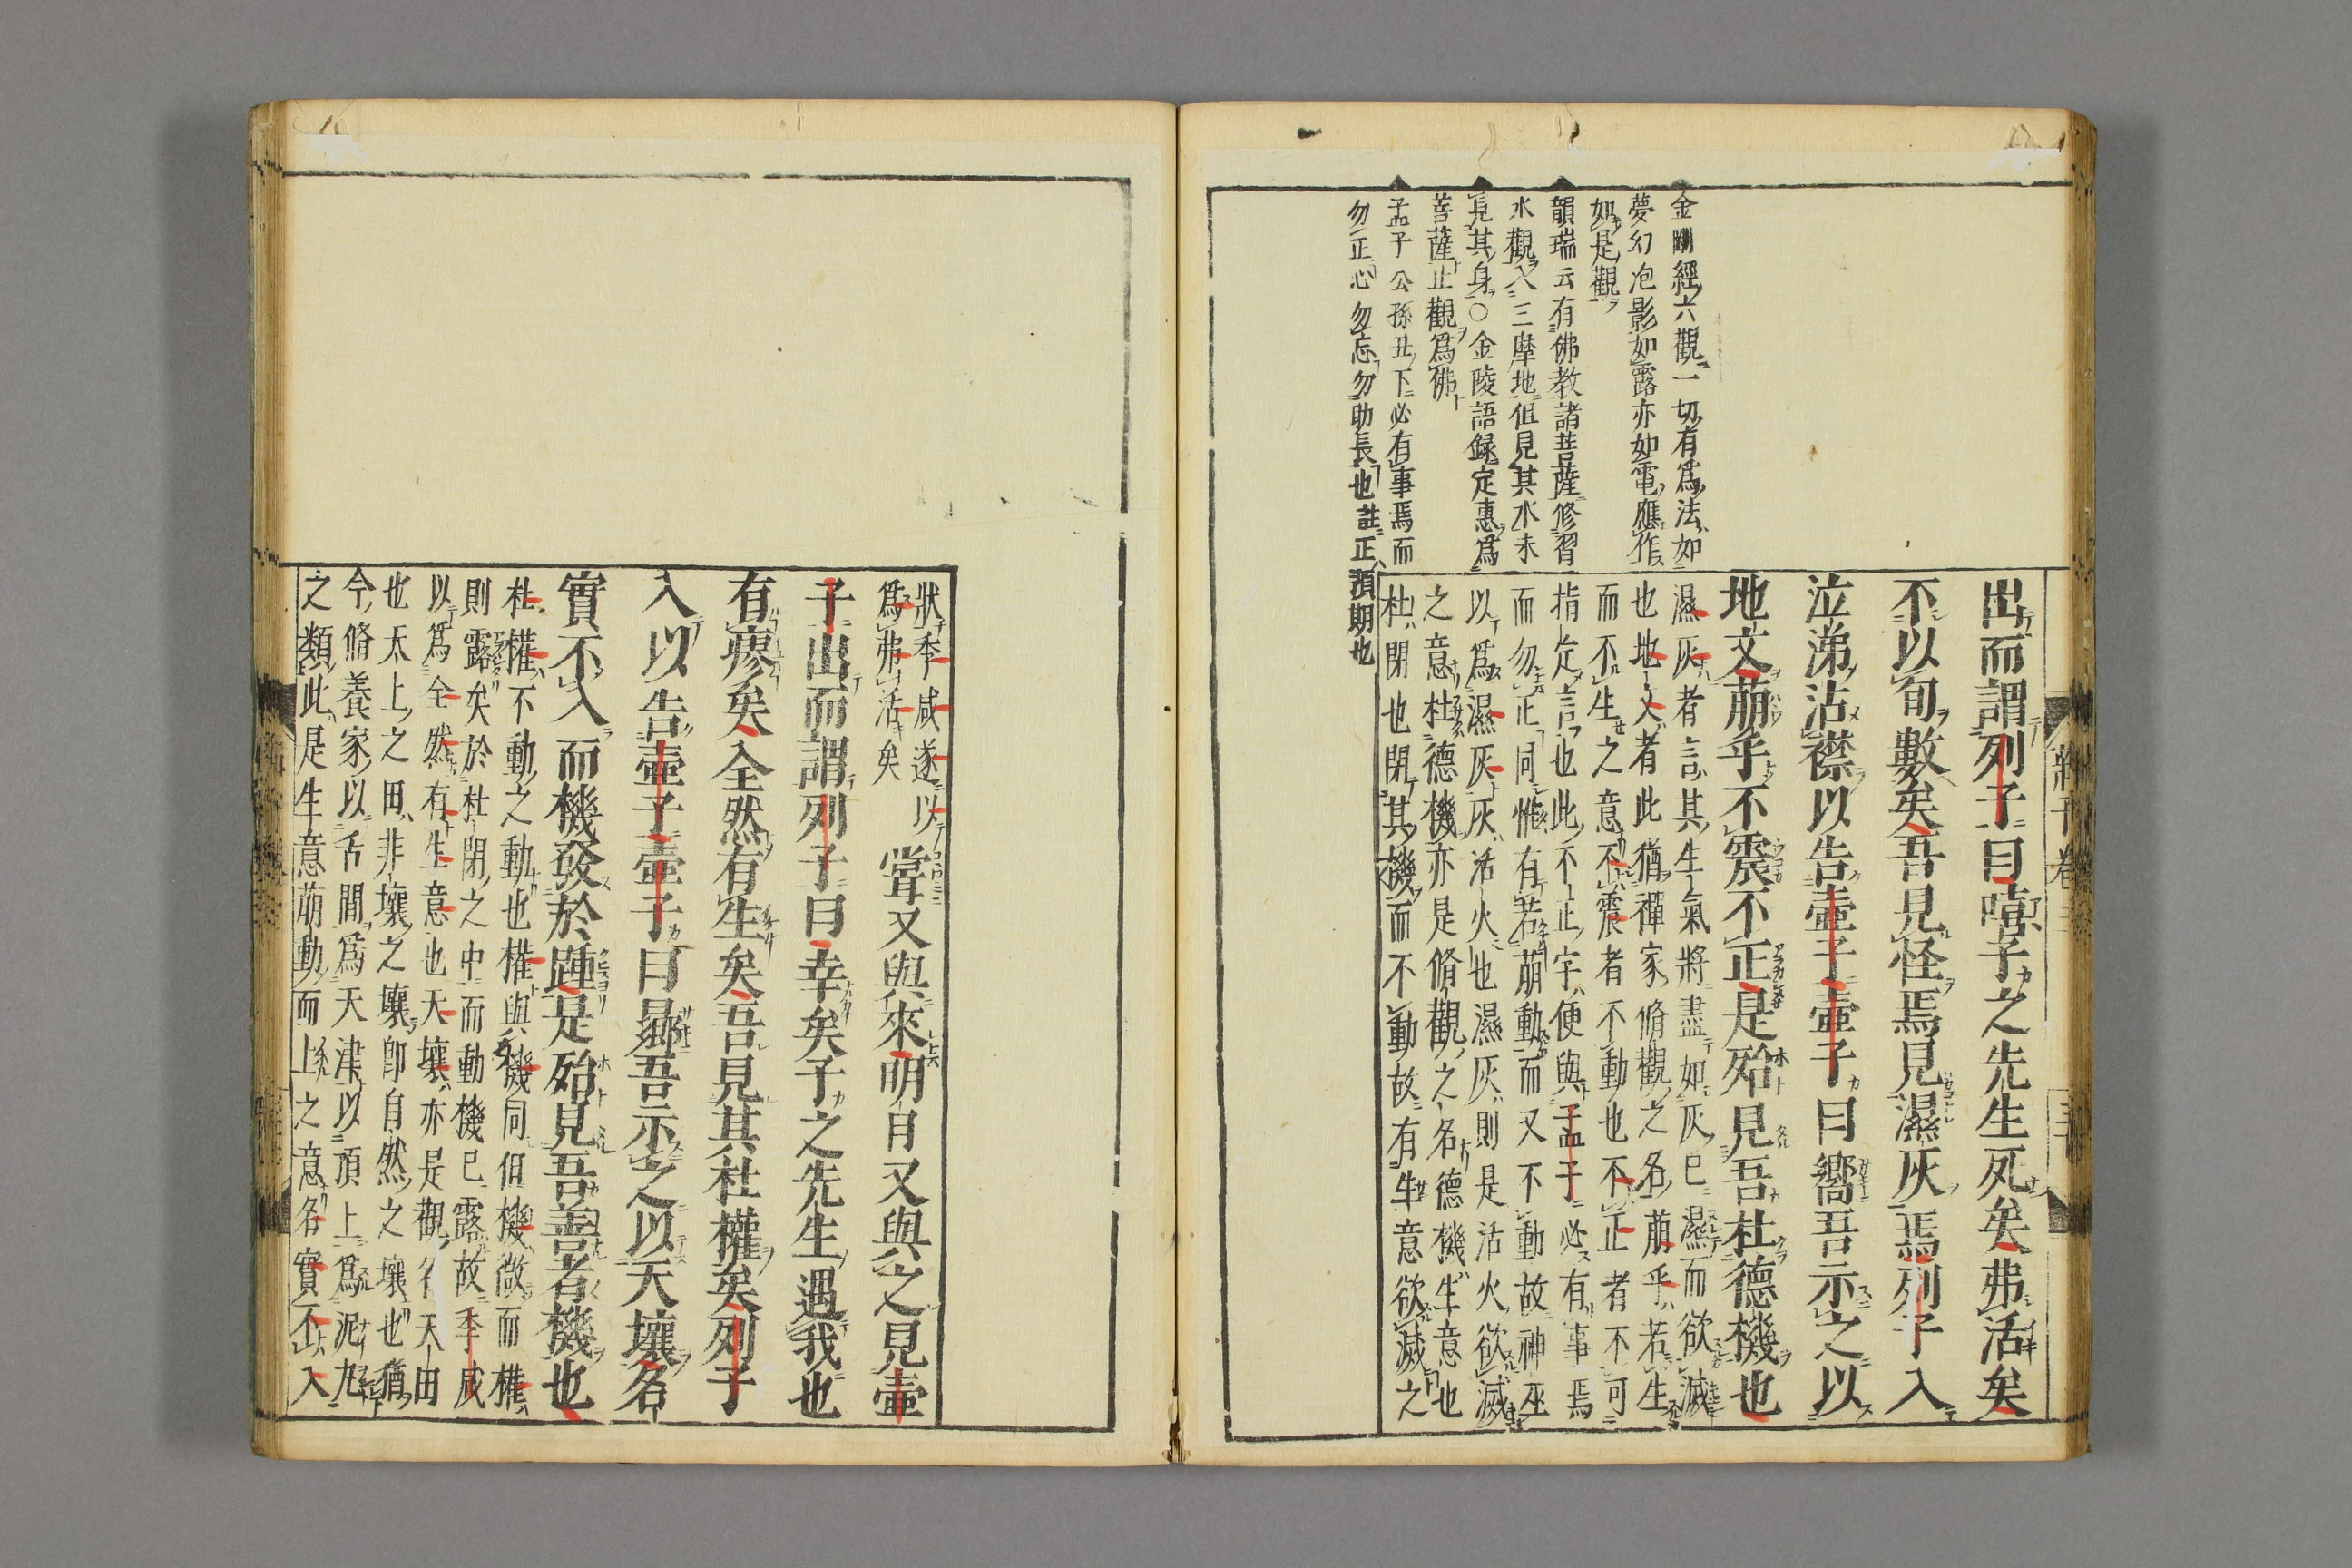 金剛經六觀一切有爲法如
夢幻泡影如露亦如電應作
如是觀
韻瑞云有佛教諸菩薩修習
水觀入三摩地但見其水未
見其身○金陵語録定惠爲
菩薩止觀爲佛
孟子公孫丑下必有事焉而
勿正心勿忘勿助長也註正預期也
出而謂列子曰嘻子之先生死矣弗活矣
不以旬數矣吾見怪焉見濕灰焉列子入
泣涕沾襟以告壺子壺子曰嚮吾示之以
地文萠乎不震不正是殆見吾杜德機也
濕灰者言其生氣將盡如灰已濕而欲滅
也地文者此猶禪家脩觀之名萠乎若生
而不生之意不震者不動也不正者不可
指定言也此不正字便與孟子必有事焉
而勿正同惟有若萠動而又不動故神巫
以爲濕灰灰活火也濕灰則是活火欲滅
之意杜德機亦是脩觀之名德機生意也
杜閉也閉其機而不動故有生意欲滅之
狀季咸遂以
爲弗活矣
甞又與來明日又與之見壺
子出而謂列子曰幸矣子之先生遇我也
有瘳矣全然有生矣吾見其杜權矣列子
入以告壺子壺子曰曏吾示之以天壤名
實不入而機發於踵是殆見吾善者機也
杜權不動之動也權與機同但機微而權
則露矣於杜閉之中而動機已露故季咸
以爲全然有生意也天壤亦是觀名天田
也太上之田非壤之壤即自然之壤也猶
今脩養家以舌間爲天津以頂上爲泥丸
之類此是生意萠動而上之意名實不入